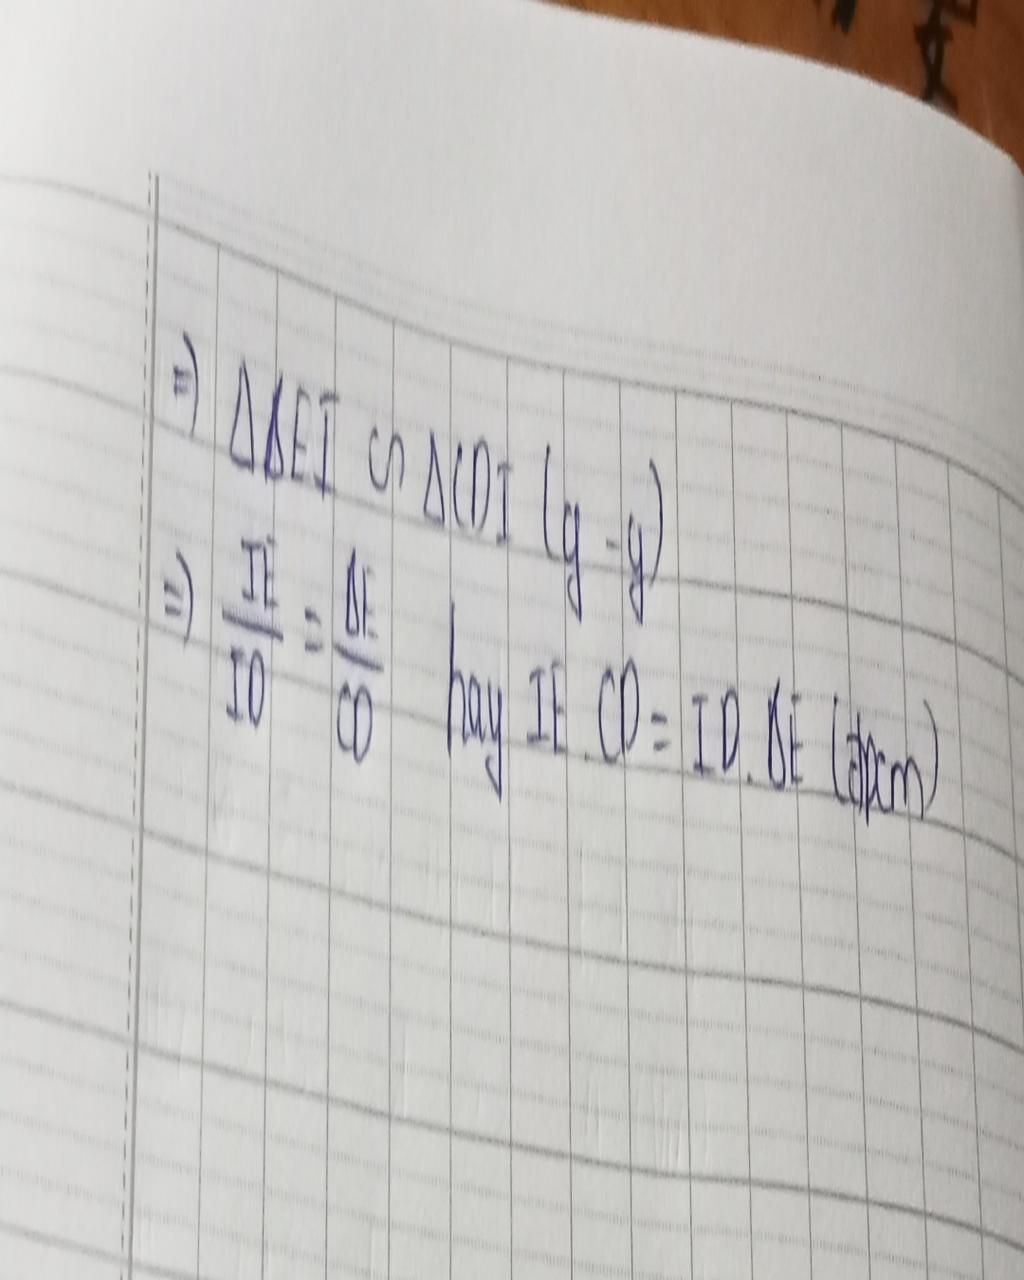 =) ΔBEI ∽ ΔCDI (g-g)
=) IE/ID = BE/CD hay IE.CD = ID.BE (đpcm)